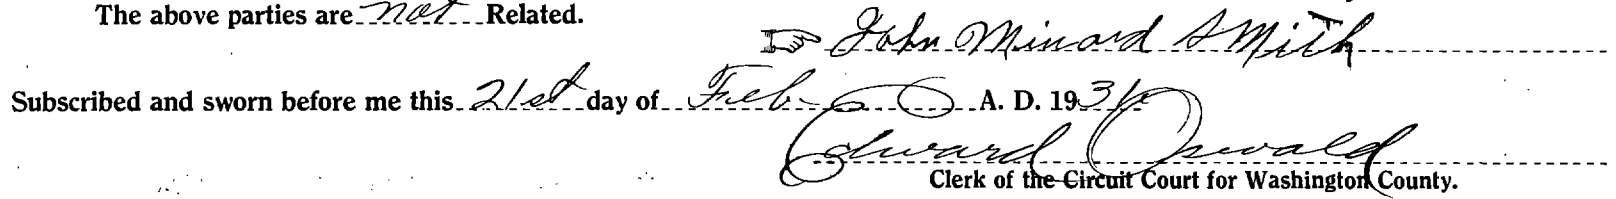 The above parties are not Related.
☞ John Minard Smith
Subscribed and sworn before me this 21st day of Feb. A. D. 1936
Edward Oswald
Clerk of the Circuit Court for Washington County.